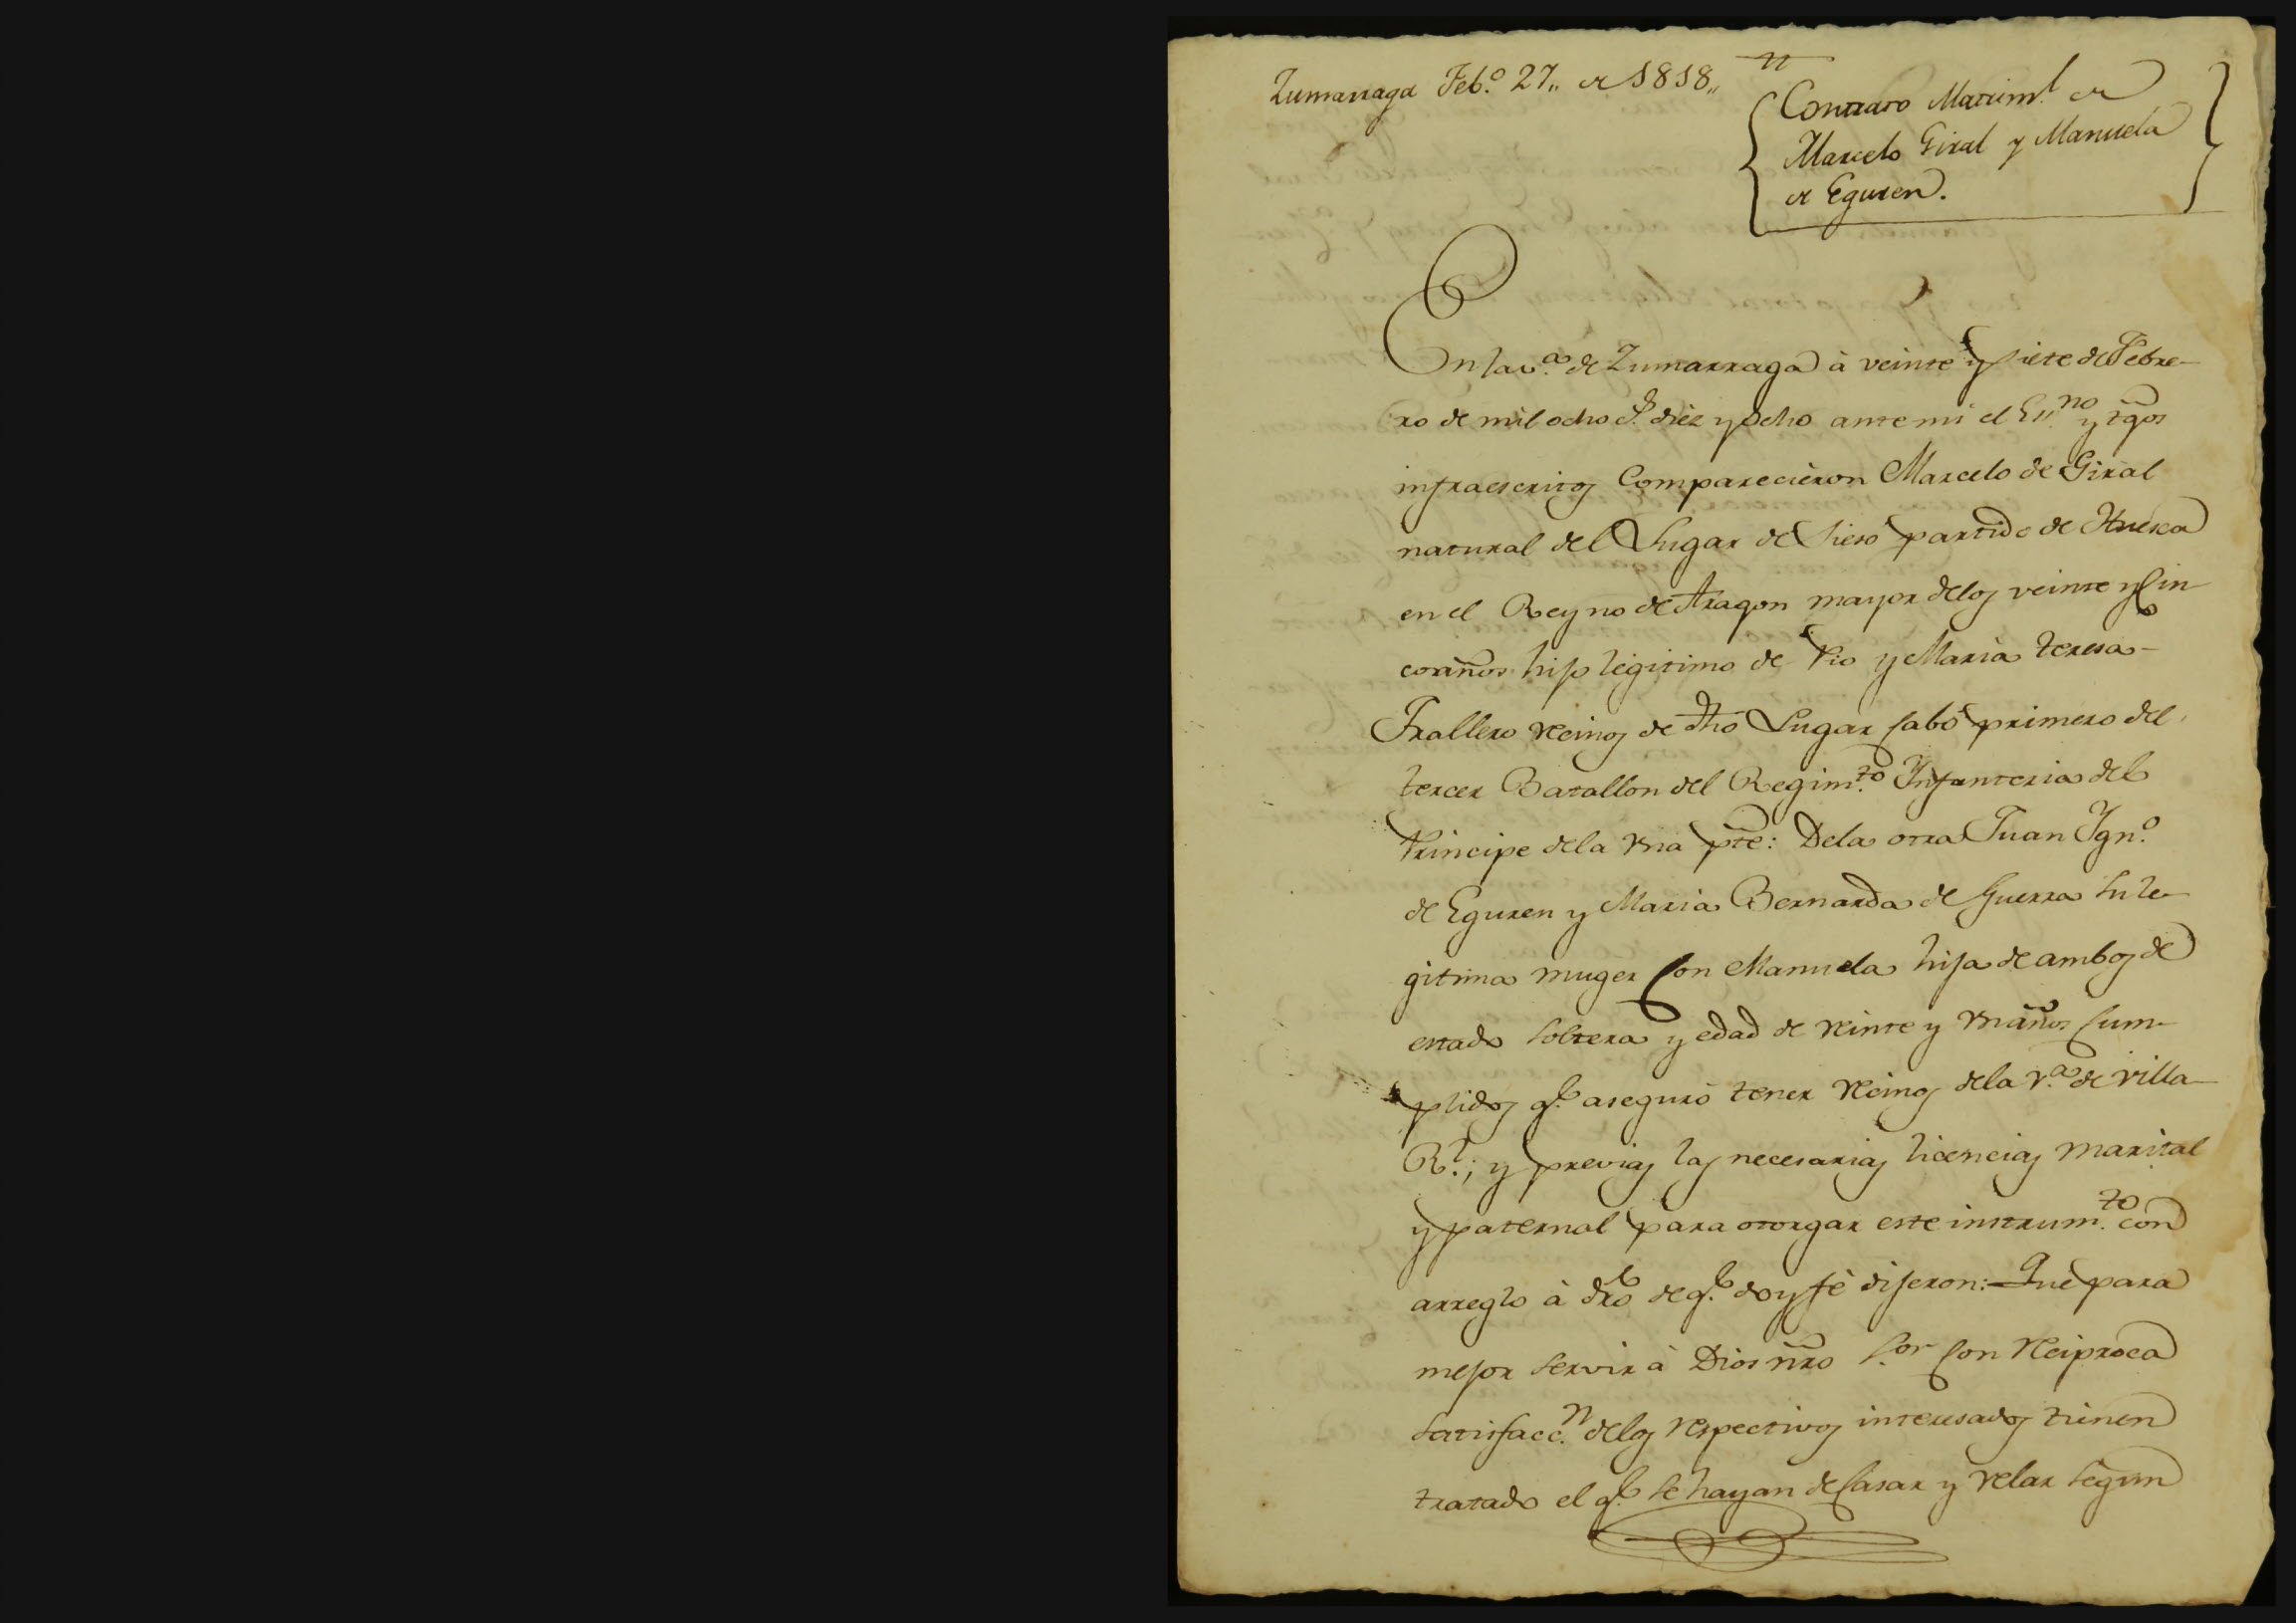 Zumarraga Feb.º 27,, de 1818,,
Contrato Matrim.l de
Marcelo Giral y Manuela
de Eguren.
En la v.a de Zumarraga à veinte y siete de Febre-
ro de mil ocho c.s diez y ocho ante mi el Ess.no y tgos
infraescritos Comparecieron Marcelo de Giral
natural del Lugar de Sieso partido de Huesca
en el Reyno de Aragon mayor de los veinte y Cin-
co años hijo legitimo de Pio y Maria teresa-
Frallero vecinos de dho Lugar Cabo primero del
tercer Batallon del Regim.to Ynfanteria del
Principe de la vna pte: De la otra Juan Ygn.º
de Eguren y Maria Bernarda de Guerra su le-
gitima muger Con Manuela hija de ambos de
estado soltera y edad de veinte y vn años Cum-
plidos q.e aseguró tener vecinos de la v.a de villa-
R.l; y previas las necesarias licencias marital
y paternal para otorgar este instrum.to con
arreglo à dro de q.e doy fé dijeron: Que para
mejor servir à Dios nro S.or Con reciproca
satisfacc.n de los respectivos interesados tienen
tratado el q.e se hayan de Casar y velar segun